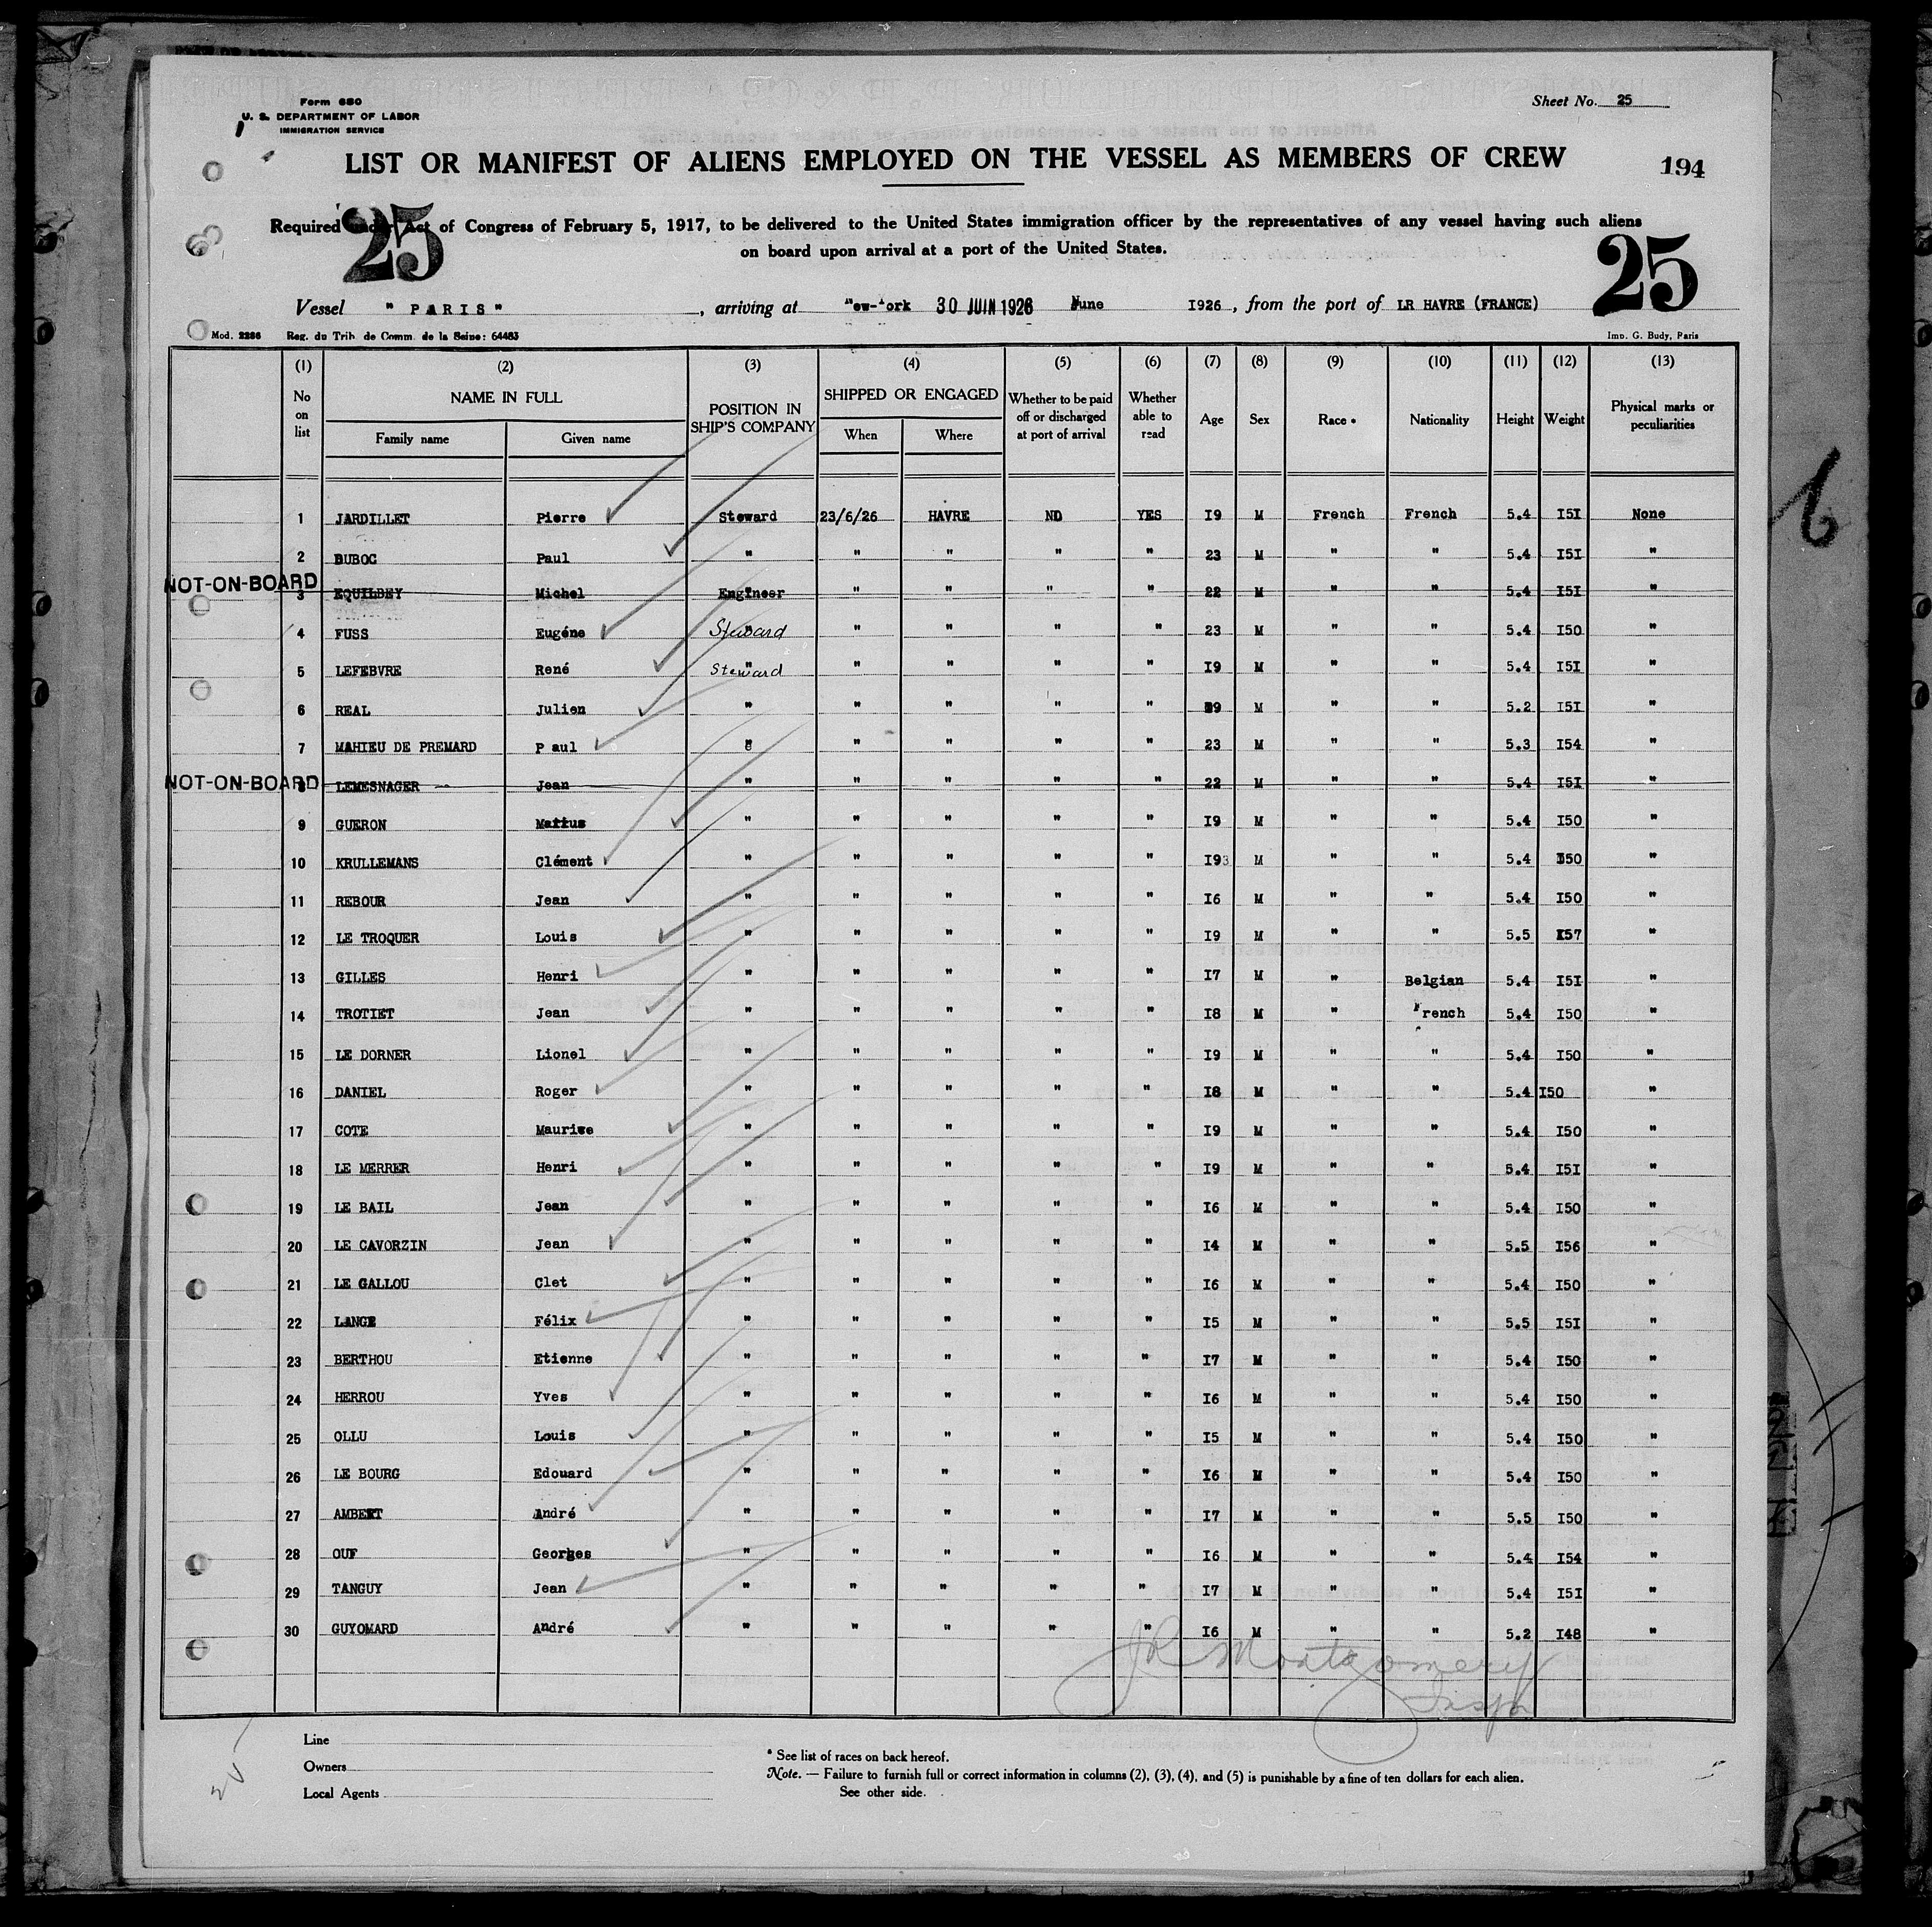 Form 680
U. S. DEPARTMENT OF LABOR
IMMIGRATION SERVICE
Sheet No. 25
LIST OR MANIFEST OF ALIENS EMPLOYED ON THE VESSEL AS MEMBERS OF CREW
194
Required under Act of Congress of February 5, 1917, to be delivered to the United States immigration officer by the representatives of any vessel having such aliens
on board upon arrival at a port of the United States.
25
25
Vessel " PARIS " , arriving at New-York 30 JUIN 1926 June 1926 , from the port of LR HAVRE (FRANCE)
Mod. 2286 Reg. du Trib. de Comm. de la Seine: 64483 Imp. G. Budy, Paris
(1) (2) (3) (4) (5) (6) (7) (8) (9) (10) (11) (12) (13)
No on list NAME IN FULL Family name Given name POSITION IN SHIP'S COMPANY SHIPPED OR ENGAGED When Where Whether to be paid off or discharged at port of arrival Whether able to read Age Sex Race * Nationality Height Weight Physical marks or peculiarities
1 JARDILLET Pierre Steward 23/6/26 HAVRE ND YES I9 M French French 5.4 I5I None
2 DUBOC Paul " " " " " 23 M " " 5.4 I5I "
NOT-ON-BOARD
3 EQUILBEY Michel Engineer " " " " 22 M " " 5.4 I5I "
4 FUSS Eugéne Steward " " " " 23 M " " 5.4 I50 "
5 LEFEBVRE René Steward " " " " I9 M " " 5.4 I5I "
6 REAL Julien " " " " " 9 M " " 5.2 I5I "
7 MAHIEU DE PREMARD P aul " " " " " 23 M " " 5.3 I54 "
NOT-ON-BOARD
8 LEMESNAGER Jean " " " " " 22 M " " 5.4 I5I "
9 GUERON " " " " " I9 M " " 5.4 I50 "
10 KRULLEMANS Clément " " " " " I93 M " " 5.4 I50 "
11 REBOUR Jean " " " " " I6 M " " 5.4 I50 "
12 LE TROQUER Louis " " " " " I9 M " " 5.5 I57 "
13 GILLES Henri " " " " " I7 M " Belgian 5.4 I5I "
14 TROTIET Jean " " " " " I8 M " French 5.4 I50 "
15 LE DORNER Lionel " " " " " I9 M " " 5.4 I50 "
16 DANIEL Roger " " " " " I8 M " " 5.4 I50 "
17 COTE Maurice " " " " " I9 M " " 5.4 I50 "
18 LE MERRER Henri " " " " " I9 M " " 5.4 I5I "
19 LE BAIL Jean " " " " " I6 M " " 5.4 I50 "
20 LE CAVORZIN Jean " " " " " I4 M " " 5.5 I56 "
21 LE GALLOU Clet " " " " " I6 M " " 5.4 I50 "
22 LANGE Félix " " " " " I5 M " " 5.5 I5I "
23 BERTHOU Etienne " " " " " I7 M " " 5.4 I50 "
24 HERROU Yves " " " " " I6 M " " 5.4 I50 "
25 OLLU Louis " " " " " I5 M " " 5.4 I50 "
26 LE BOURG Edouard " " " " " I6 M " " 5.4 I50 "
27 AMBERT André " " " " " I7 M " " 5.5 I50 "
28 OUF Georges " " " " " I6 M " " 5.4 I54 "
29 TANGUY Jean " " " " " I7 M " " 5.4 I5I "
30 GUYOMARD André " " " " " I6 M " " 5.2 I48 "
J R Montgomery
Insp
Line
Owners
Local Agents
* See list of races on back hereof.
Note. — Failure to furnish full or correct information in columns (2), (3), (4), and (5) is punishable by a fine of ten dollars for each alien.
See other side.